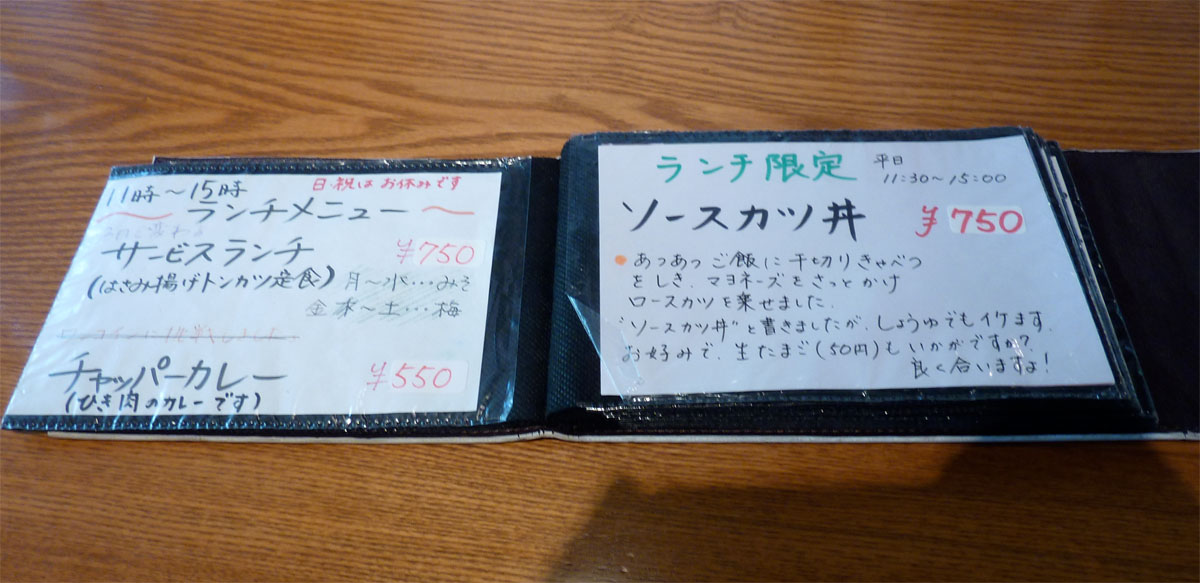 11時~15時
日・祝は お休みです
~ ランチメニュー ~
サービスランチ ¥750
(はさみ揚げトンカツ定食) 月~水…みそ
木~土…梅
チャッパーカレー ¥550
(ひき肉のカレーです)
ランチ限定
平日
11:30~15:00
ソースカツ丼 ¥750
あつあつ ご飯に 千切りきゃべつ
をしき、マヨネーズをさっとかけ
ロースカツを乗せました。
"ソースカツ丼"と書きましたが、しょうゆでもイケます。
お好みで、生たまご(50円)も いかがですか?
良く合いますよ!